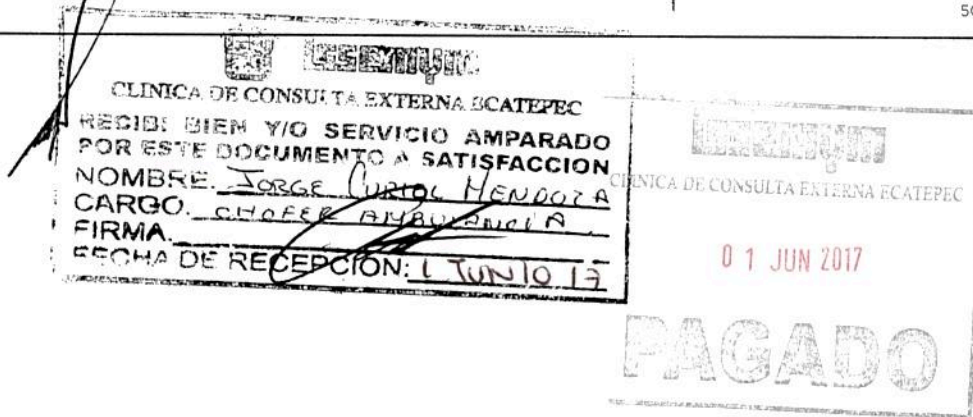 CLINICA DE CONSULTA EXTERNA ECATEPEC
RECIBI BIEN Y/O SERVICIO AMPARADO
POR ESTE DOCUMENTO A SATISFACCION
NOMBRE: JORGE CURIOL MENDOZA
CARGO. CHOFER AMBULANCIA
FIRMA.
FECHA DE RECEPCIÓN: 1 JUNIO 17
CLINICA DE CONSULTA EXTERNA ECATEPEC
0 1 JUN 2017
PAGADO